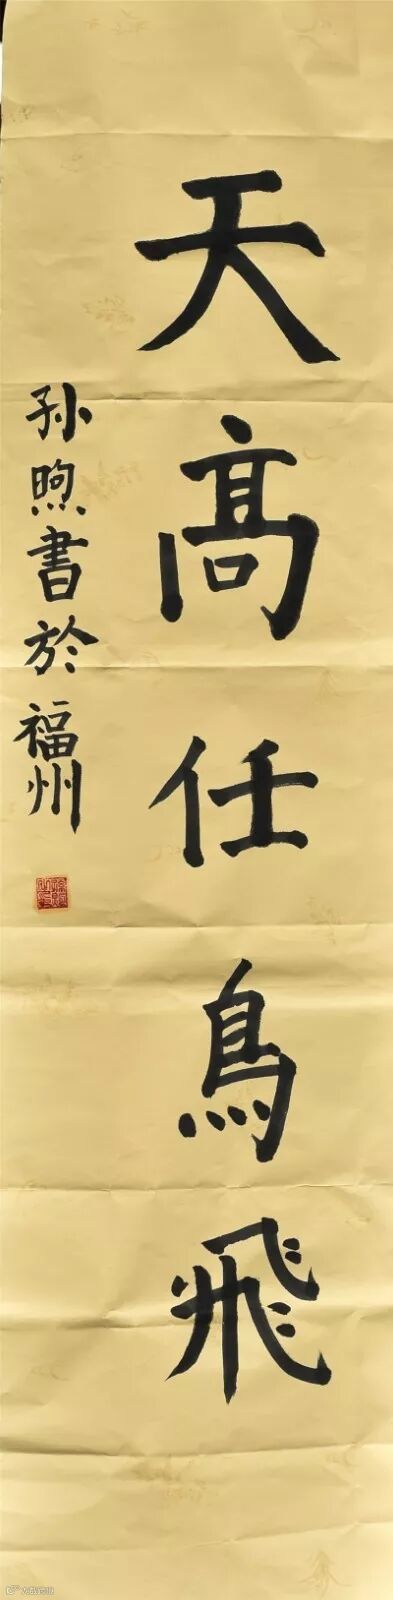 天髙任鳥飛
孙煦書於福州